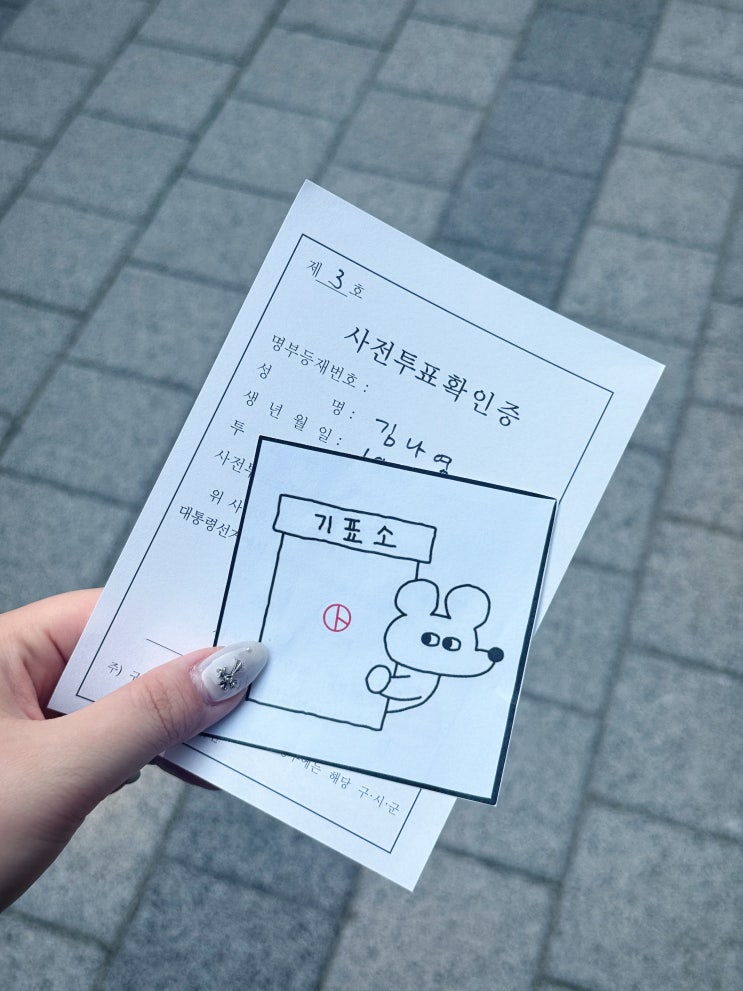 제 3 호
사전투표확인증
명부등재번호 :
성 명 : 김나영
생 년 월 일 :
투
사전투
위 사
대통령선거
주)
해당 구·시·군
기표소